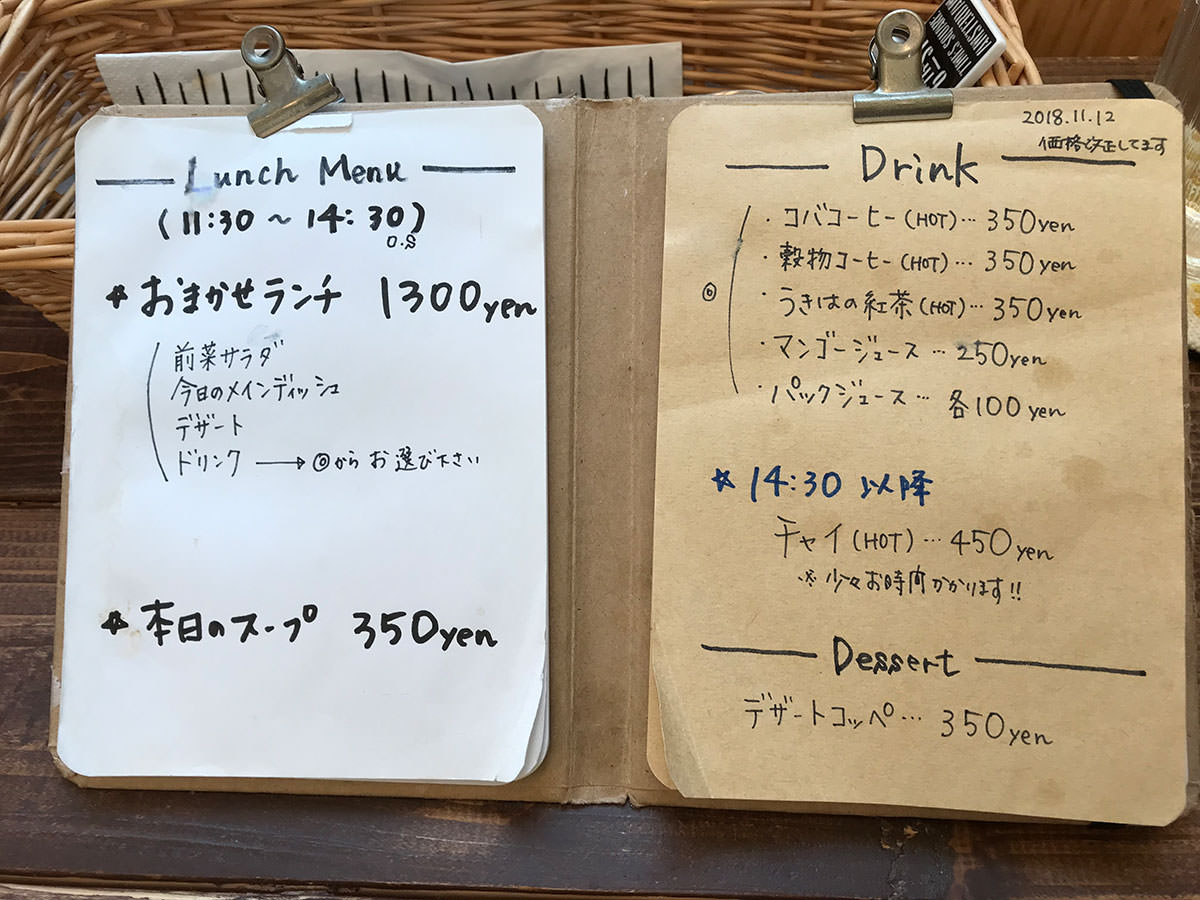 Lunch Menu
(11:30 ~ 14:30)
O.S
☆ おまかせランチ 1300yen
前菜サラダ
今日のメインディッシュ
デザート
ドリンク → ◎からお選び下さい
☆ 本日のスープ 350yen
2018.11.12
価格改正してます
Drink
◎
・コバコーヒー(HOT)… 350yen
・穀物コーヒー(HOT)… 350yen
・うきはの紅茶(HOT)… 350yen
・マンゴージュース … 250yen
・パックジュース … 各100yen
☆ 14:30 以降
チャイ(HOT)… 450yen
※少々お時間かかります!!
Dessert
デザートコッペ… 350yen